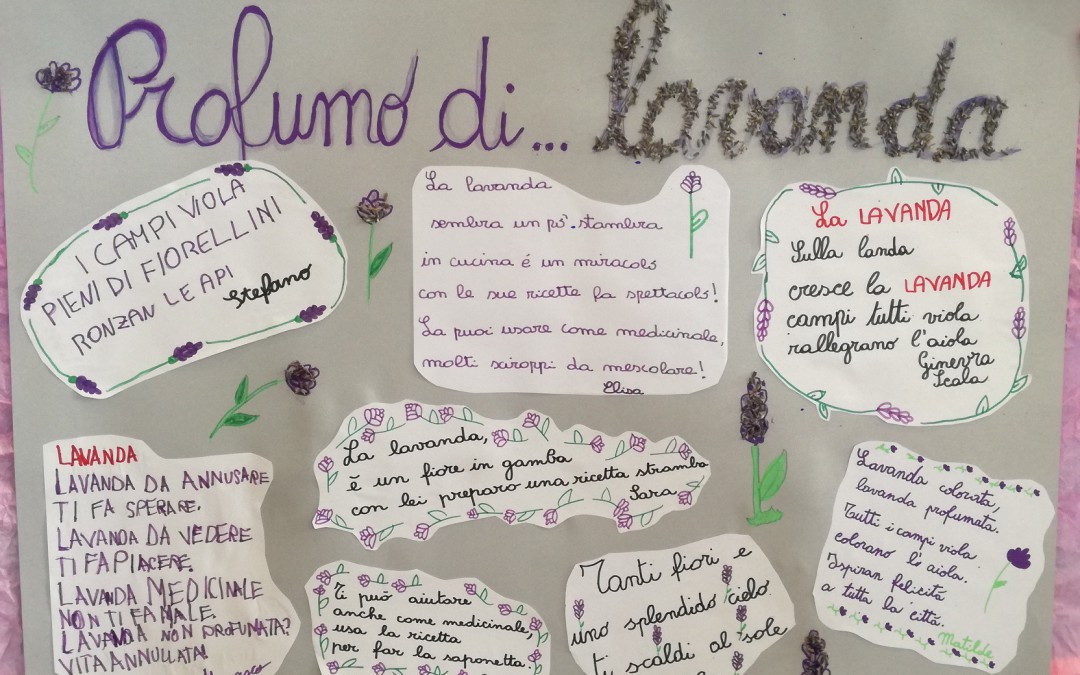 Profumo di... lavanda
I CAMPI VIOLA
PIENI DI FIORELLINI
RONZAN LE API
Stefano
La lavanda
sembra un pò stambra
in cucina é un miracolo
con le sue ricette fa spettacolo!
La puoi usare come medicinale,
molti sciroppi da mescolare!
Elisa
La LAVANDA
Sulla landa
cresce la LAVANDA
campi tutti viola
rallegrano l'aiola
Ginevra
Scala
LAVANDA
LAVANDA DA ANNUSARE
TI FA SPERARE.
LAVANDA DA VEDERE
TI FA PIACERE.
LAVANDA MEDICINALE
NON TI FA MALE.
LAVANDA NON PROFUMATA?
VITA ANNULLATA!
La lavanda,
è un fiore in gamba
con lei preparo una ricetta stramba
Sara
Ti può aiutare
anche come medicinale,
usa la ricetta
per far la saponetta.
Tanti fiori e
uno splendido cielo
ti scaldi al sole
Lavanda colorata,
lavanda profumata.
Tutti i campi viola
colorano l'aiola.
Ispiran felicità
a tutta la città.
Matilde